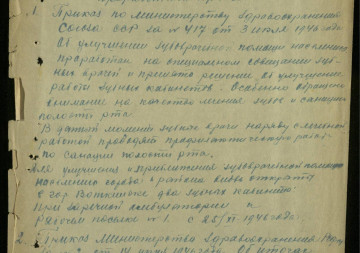 1. Приказ по Министерству Здравоохранения
Союза ССР за № 417 от 3 июля 1946 года
Об улучшении зубоврачебной помощи населению
проработан на специальном совещании зуб-
ных врачей и принято решение об улучшении
работы зубных кабинетов. Особенно обращено
внимание на качество лечения зубов и санацию
полости рта.
В данный момент зубные врачи наряду с лечебной
работой проводят профилактическую работу
по санации полости рта.
Для улучшения и приближения зубоврачебной помощи
населению города и района вновь открыто
в гор два зубных кабинета:
При заречной амбулатории и
Рабочем поселке № 1 с 1946 года.
2. Приказ Министерства Здравоохранения
от 14 июля 1946 года Об итогах